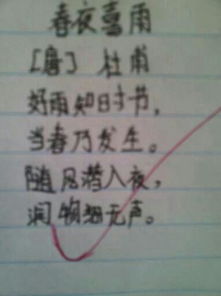 春夜喜雨
[唐] 杜甫
好雨知时节,
当春乃发生。
随风潜入夜,
润物细无声。